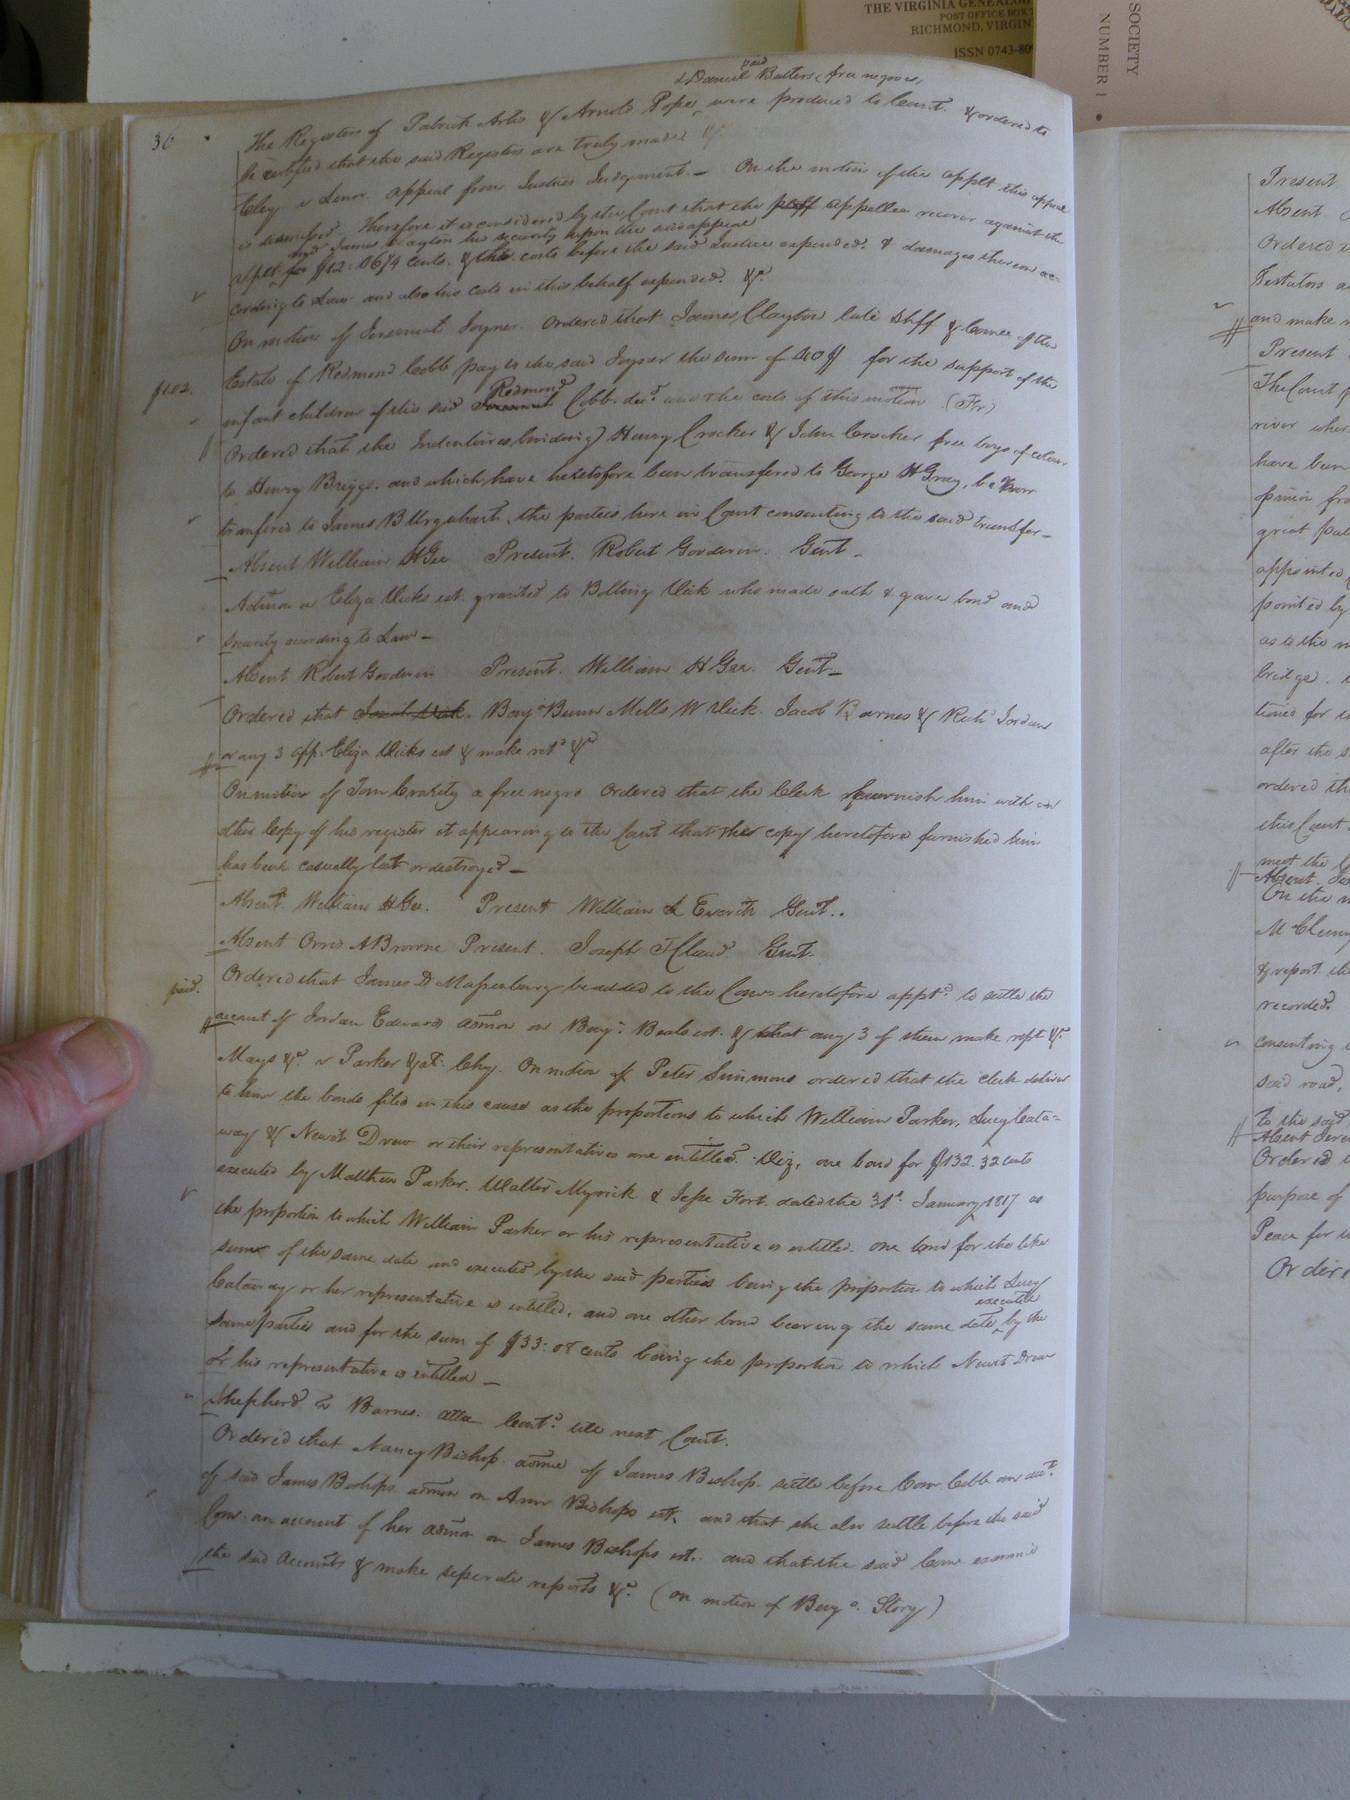 THE VIRGINIA GENEALOG
POST OFFICE BOX
RICHMOND, VIRGIN
ISSN 0743-80
SOCIETY
NUMBER 1
36
paid
& Daniel Batters, free negroes,
The Registers of Patrick Artis & Arnold Pope, were produced to Court & ordered to
be certified that the said Registers are truly made &c
Eley v Lenow appeal from Justices Judgment. — On the motion of the applt this appeal
is dismissed. Therefore it is considered by the Court that the pltff appellee recover against the
and James Clayton his security upon the said appeal
applt for $12: 06¼ cents. & his costs before the said Justice expended. & damages thereon ac-
cording to Law and also his costs in this behalf expended. &c.
On motion of Jeremiah Joyner. Ordered that James Clayton late Shff & Comee of the
$1.02.
Estate of Redmond Cobb pay to the said Joyner the sum of 40$ for the support of the
Redmond
infant children of the said Jeremiah Cobb. decd. and the costs of this motion (Fr)
Ordered that the Indentures binding Henry Crocker & John Crocker free boys of colour
to Henry Briggs. and which have heretofore been transfered to George H Gray, be now
tranfered to James B Urquhart, the parties here in Court consenting to the said transfer —
Absent William H Gee Present. Robert Goodwin. Gent —
Admon on Eliza Vicks est. granted to Bolling Vick who made oath & gave bond and
security according to Law —
Absent Robert Goodwin Present. William H Gee. Gent —
Ordered that Benja Bunn Mills W Vick. Jacob Barnes & Richd Jordan
or any 3 app: Eliza Vicks est & make retn &c
On motion of Tom Cravity a free negro Ordered that the Clerk furnish him with an
other Copy of his register it appearing to the Court that the copy heretofore furnished him
has been casually lost or destroyed —
Absent William H Gee. Present William L Everitt Gent..
Absent Orris A Browne Present. Joseph T Claud Gent.
paid.
Ordered that James D Massenburg be added to the Comrs heretofore apptd. to settle the
account of Jordan Edwards admon on Benja: Beals est. & that any 3 of them make rept &c.
Mays &c. v Parker & al. Chy. On motion of Peter Simmons ordered that the clerk deliver
to him the bonds filed in this cause as the proportions to which William Parker, Lucy Cata=
way & Newit Drew or their representatives are entitled. Viz, one bond for $132. 32 cents
executed by Matthew Parker. Walter Myrick & Jesse Fort. dated the 31st. January 1817 as
the proportion to which William Parker or his representative is entitled. one bond for the like
sum of the same date and executed by the said parties being the proportion to which Lucy
Cataway or her representative is entitled, and one other bond bearing the same date, by the
executed
same parties and for the sum of $33: 08 cents being the proportion to which Newit Drew
or his representative is entitled —
Shepherd v Barnes. atta Contd. till next Court.
Ordered that Nancy Bishop. admx of James Bishop. settle before Com Cobb an acct.
of said James Bishops admon on Ann Bishops est, and that she also settle before the said
Com. an account of her admon on James Bishops est.. and that the said Com examine
the said Accounts & make seperate reports &c. (on motion of Benja. Story)
Present
Absent
Ordered
Testators
and make
Present
The Court
river
have been
opinion fro
great
appointed
pointed by
as to the
bridge.
tioned for
after the
ordered th
this Court
meet the
Absent.
On the
& report the
recorded.
consenting
said road,
to the said
Ordered
purpose of
Peace for
Order